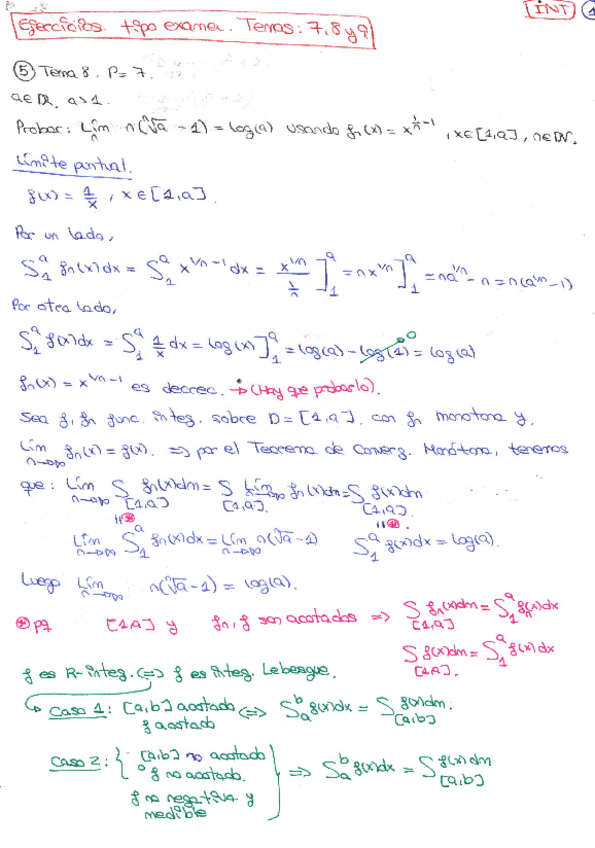 INT 1
Ejercicios tipo examen. Temas: 7, 8 y 9
⑤ Tema 8. P=7.
a∈ℝ, a>1.
Probar: Lím_n n(ⁿ√a - 1) = log(a) usando fn(x) = x^(1/n - 1), x∈[1,a], n∈ℕ.
Límite puntual.
f(x) = 1/x, x∈[1,a].
Por un lado,
∫₁^a fn(x)dx = ∫₁^a x^(1/n-1) dx = x^(1/n)/(1/n) ]₁^a = n x^(1/n) ]₁^a = na^(1/n) - n = n(a^(1/n) - 1)
Por otra lado,
∫₁^a f(x)dx = ∫₁^a 1/x dx = log(x) ]₁^a = log(a) - log(1) = log(a)
0
fn(x) = x^(1/n-1) es decrec. → (Hay que probarlo).
Sea f, fn func. integ. sobre D = [1,a], con fn monótona y,
Lím_(n→∞) fn(x) = f(x). ⇒ por el Teorema de Converg. Monótona, tenemos
que: Lím_(n→∞) ∫_[1,a] fn(x)dm = ∫_[1,a] Lím_(n→∞) fn(x)dm = ∫_[1,a] f(x)dm
"⊛ "⊛.
Lím_(n→∞) ∫₁^a fn(x)dx = Lím_(n→∞) n(ⁿ√a - 1) ∫₁^a f(x)dx = log(a).
Luego Lím_(n→∞) n(ⁿ√a - 1) = log(a).
⊛ pq [1,a] y fn, f son acotados ⇒ ∫_[1,a] fn(x)dm = ∫₁^a fn(x)dx
∫_[1,a] f(x)dm = ∫₁^a f(x)dx
f es R-integ. ⇔ f es integ. Lebesgue.
↳ Caso 1: [a,b] acotado ⇔ ∫_a^b f(x)dx = ∫_[a,b] f(x)dm.
f acotado
Caso 2: { [a,b] no acotado ⇒ ∫_a^b f(x)dx = ∫_[a,b] f(x)dm
o f no acotado.
f no negativa y
medible